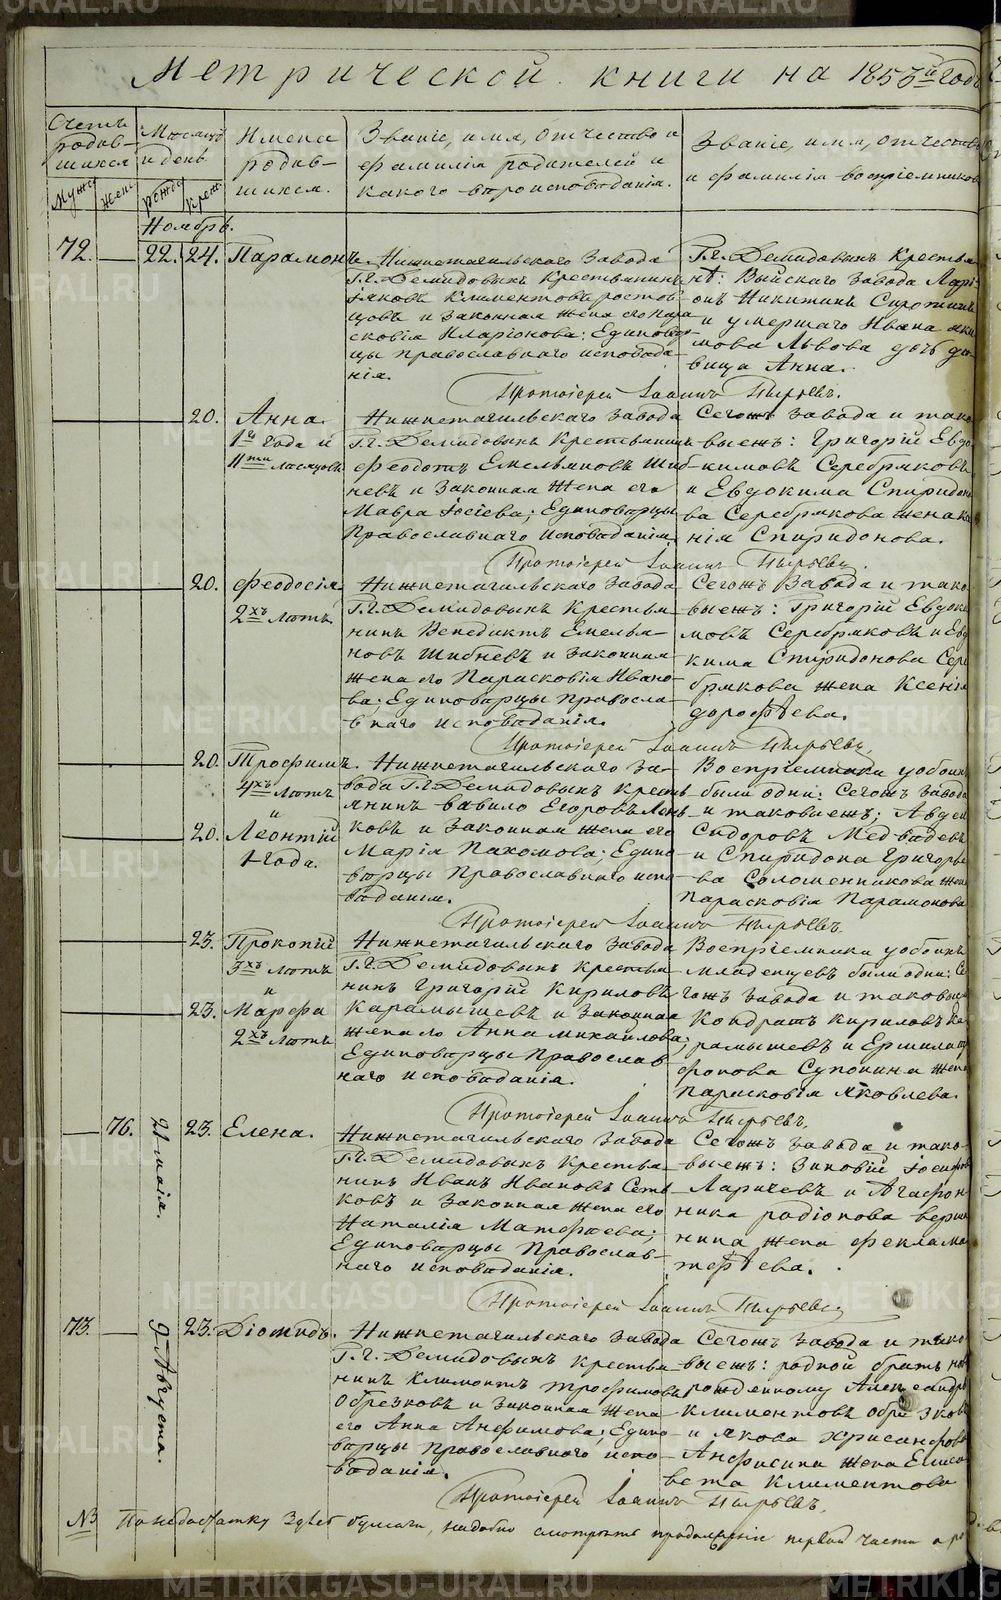 Метрической книги на 1853й годъ
Счетъ родив-шихся
Мужес
Жен.
Месяцъ и день
рожд.
Крещ.
Имена родив-шихся.
Званіе, имя, отчество и
фамилія родителей и
какого вероисповеданія.
Званіе, имя, отчество
и фамилія воспріемниковъ
Ноябрь.
72.
22.
24.
Парамонъ.
Нижнетагильскаго завода
Г.г. Демидовыхъ крестьянинъ
Іяковъ Климентовъ ростов-
цовъ и законная жена его Пара
сковія Иларіонова; Единовер-
цы православнаго исповеда-
нія.
Г.г. Демидовыхъ Крестья
не: Выйскаго завода Ларі-
онъ Никитинъ Сиротинъ
и умершаго Ивана аки
мова Львова дочь де-
вица Анна.
Протоіерей Іоаннъ Пырьевъ.
20.
Анна.
1го года и
11ти месяцовъ
Нижнетагильскаго завода
Г.г. Демидовыхъ Крестьянинъ
Феодотъ Емельяновъ Шиб-
невъ и Законная жена его
Мавра Іосіева; Единоверцы
Православнаго исповеданія.
Сегожъ завода и тако-
выежъ: Григорій Евдо
кимовъ Серебряковъ
и Евдокима Спиридоно
ва Серебрякова жена Ксе
нія Спиридонова.
Протоіерей Іоаннъ Пырьевъ.
20.
Феодосія.
2хъ летъ
Нижнетагильскаго завода
Г.г. Демидовыхъ Крестья
нинъ Венедиктъ Емелья-
новъ Шибневъ и законная
жена его Парасковія Ивано-
ва; Единоверцы правосла-
внаго исповеданія.
Сегожъ Завода и тако
выежъ: Григорій Евдоки
мовъ Серебряковъ и Евдо
кима Спиридонова Сере
брякова жена Ксенія
дорофеева.
Протоіерей Іоаннъ Пырьевъ.
20.
Трофимъ.
4хъ летъ
и
20.
Леонтій
1 года.
Нижнетагильскаго за-
вода Г.г. Демидовыхъ Кресть
янинъ вавило Егоровъ Лень-
ковъ и законная жена его
Марія Пахомова; Едино-
верцы Православнаго испо-
веданія.
Воспріемники у обоихъ
были одни: Сегожъ завода
и таковыежъ; Авдей
Сидоровъ Медведевъ
и Спиридона Григорье
ва Соломенникова жена
Парасковія Парамонова
Протоіерей Іоаннъ Пырьевъ.
23.
Прокопій
3хъ летъ
и
23.
Марфа
2хъ летъ
Нижнетагильскаго завода
Г.г. Демидовыхъ крестья-
нинъ Григорій Кириловъ
Карамышевъ и законная
жена его Анна михайлова;
Единоверцы Православ
наго исповеданія.
Воспріемники у обоихъ
младенцевъ были одни: Се
гожъ завода и таковыежъ
Кондратъ Кириловъ Ка
рамышевъ и Ермила тр
офонова Супонина жена
Парасковія Яковлева.
Протоіерей Іоаннъ Пырьевъ.
76.
21 маія.
23.
Елена.
Нижнетагильскаго завода
Г.г. Демидовыхъ Крестья-
нинъ Иванъ Ивановъ Сеть
ковъ и законная жена его
Наталія Матфеева;
Единоверцы Православ-
наго исповеданія.
Сегожъ завода и тако-
выежъ: Зиновій Іосифов
Ларичевъ и Агафон-
ника радіонова верши
нина жена Фекла ма
тфеева.
Протоіерей Іоаннъ Пырьевъ
73.
9 Августа.
23.
Діомидъ.
Нижнетагильскаго завода
Г.г. Демидовыхъ крестья
нинъ Климонтъ трофимовъ
Обрезковъ и законная жена
его Анна Анфимова; Едино-
верцы православного испо-
веданія.
Сегожъ завода и тако
выежъ: родной братъ но
рожденному Александръ
Климентовъ обрезковъ
и якова хрисанфова
Анфисина жена Елиса
вета Климентова
Протоіерей Іоаннъ Пырьевъ.
№ По недостатку здесь бумаги, надобно смотреть продолженіе первой части о ро
METRIKI.GASO-URAL.RU